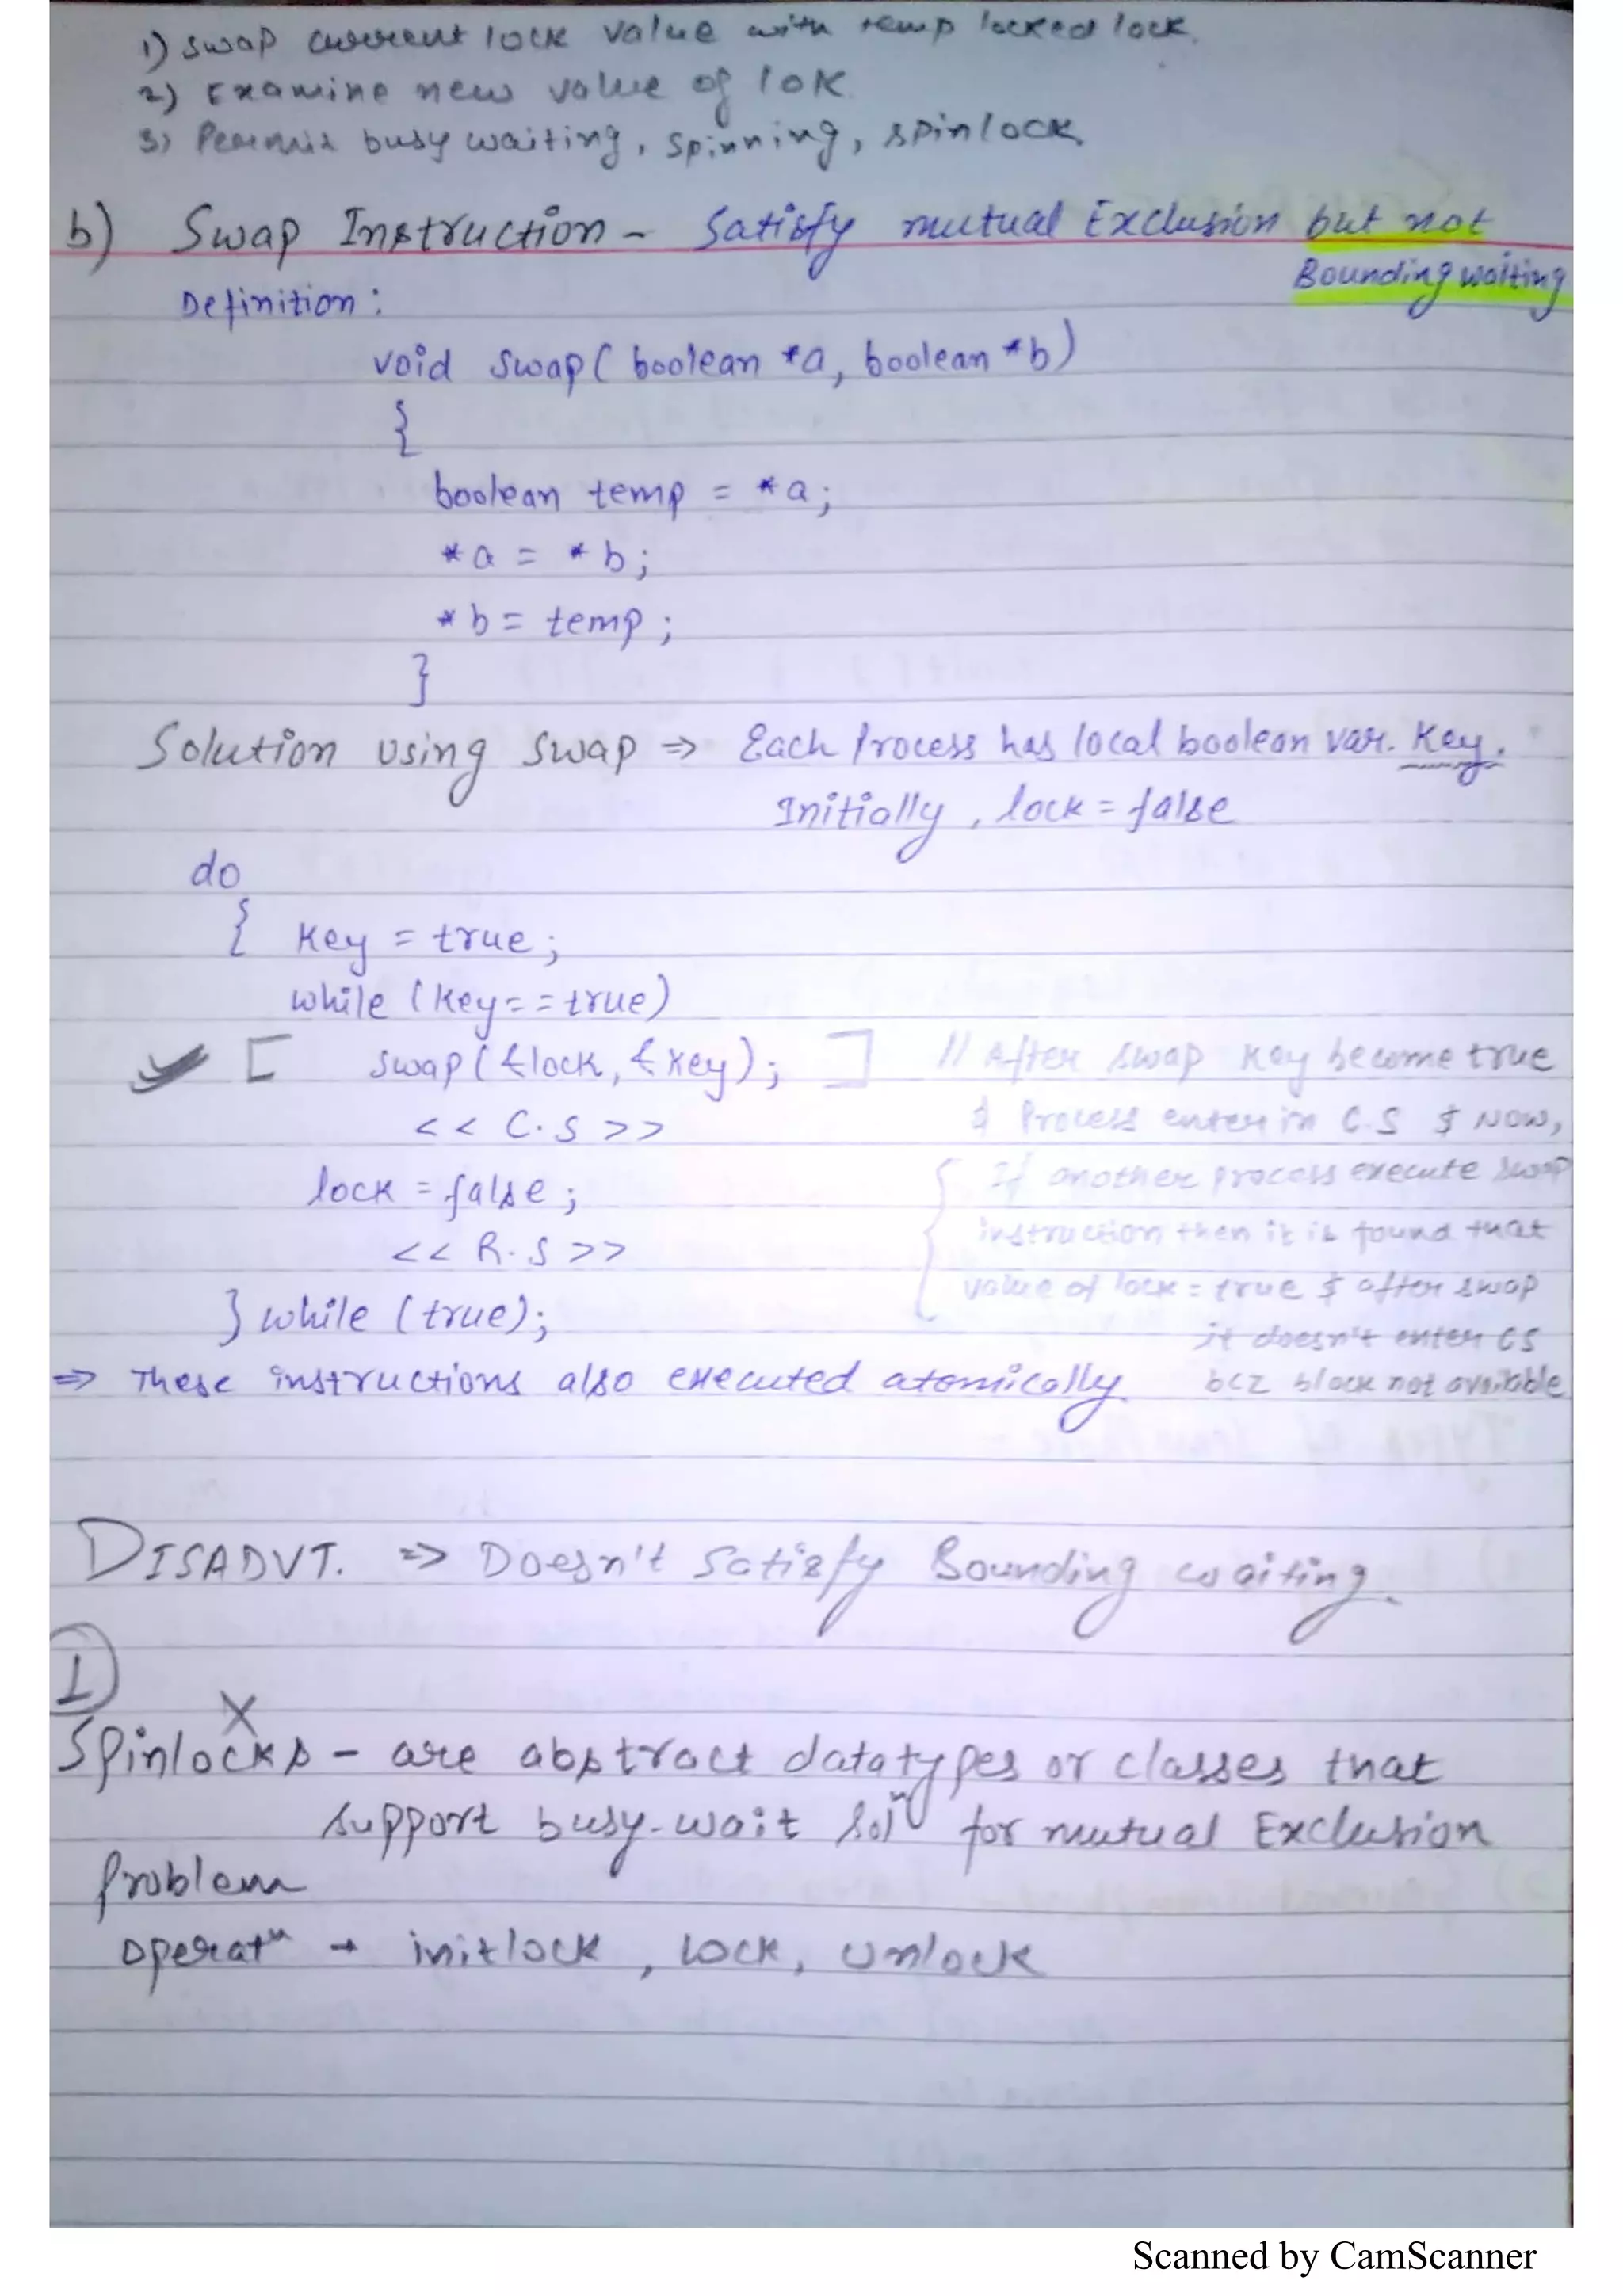 1) Swap current lock value with temp locked lock.
2) Examine new value of lok.
3) Permit busy waiting, spinning, spinlock.
b) Swap Instruction - Satisfy mutual Exclusion but not
Bounding waiting
Definition :
void swap( boolean *a, boolean *b)
{
boolean temp = *a;
*a = *b;
*b = temp;
}
Solution using swap => Each Process has local boolean var. Key.
Initially, lock = false
do
{ Key = true;
while (Key==true)
[ swap(&lock, &key); ] // After swap key become true
<< C.S >> & Process enter in C.S & Now,
lock = false; { If another process execute swap
<< R.S >> instruction then it is found that
value of lock = true & after swap
} while (true); it doesn't enter CS
=> These instructions also executed atomically. bcz block not available
DISADVT. => Doesn't Satisfy Bounding waiting.
I
X
Spinlocks - are abstract datatypes or classes that
support busy-wait solⁿ for mutual Exclusion
Problem
operatⁿ → initlock, lock, unlock
Scanned by CamScanner